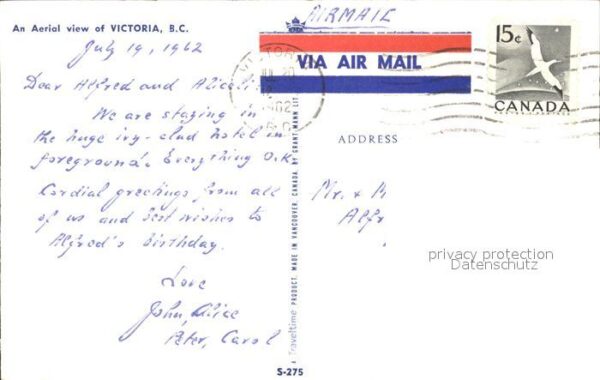 An Aerial view of VICTORIA, B.C.
July 19, 1962
Dear Alfred and
We are staying in
the huge ivy-clad hotel in
foreground. Everything O.K.
Cordial greetings from all
of us and best wishes to
Alfred's birthday.
Love
John, Alice
Peter, Carol
AIRMAIL
VIA AIR MAIL
VICTOR
1962
B.C.
15¢
CANADA
ADDRESS
Mr. &
Alfr
privacy protection
Datenschutz
A Traveltime PRODUCT, MADE IN VANCOUVER, CANADA, BY GRANT-MANN LIT
S-275